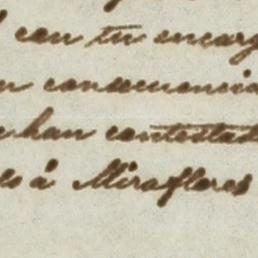 con tu encarg
n consecuencia
e han contestad
es á Miraflores